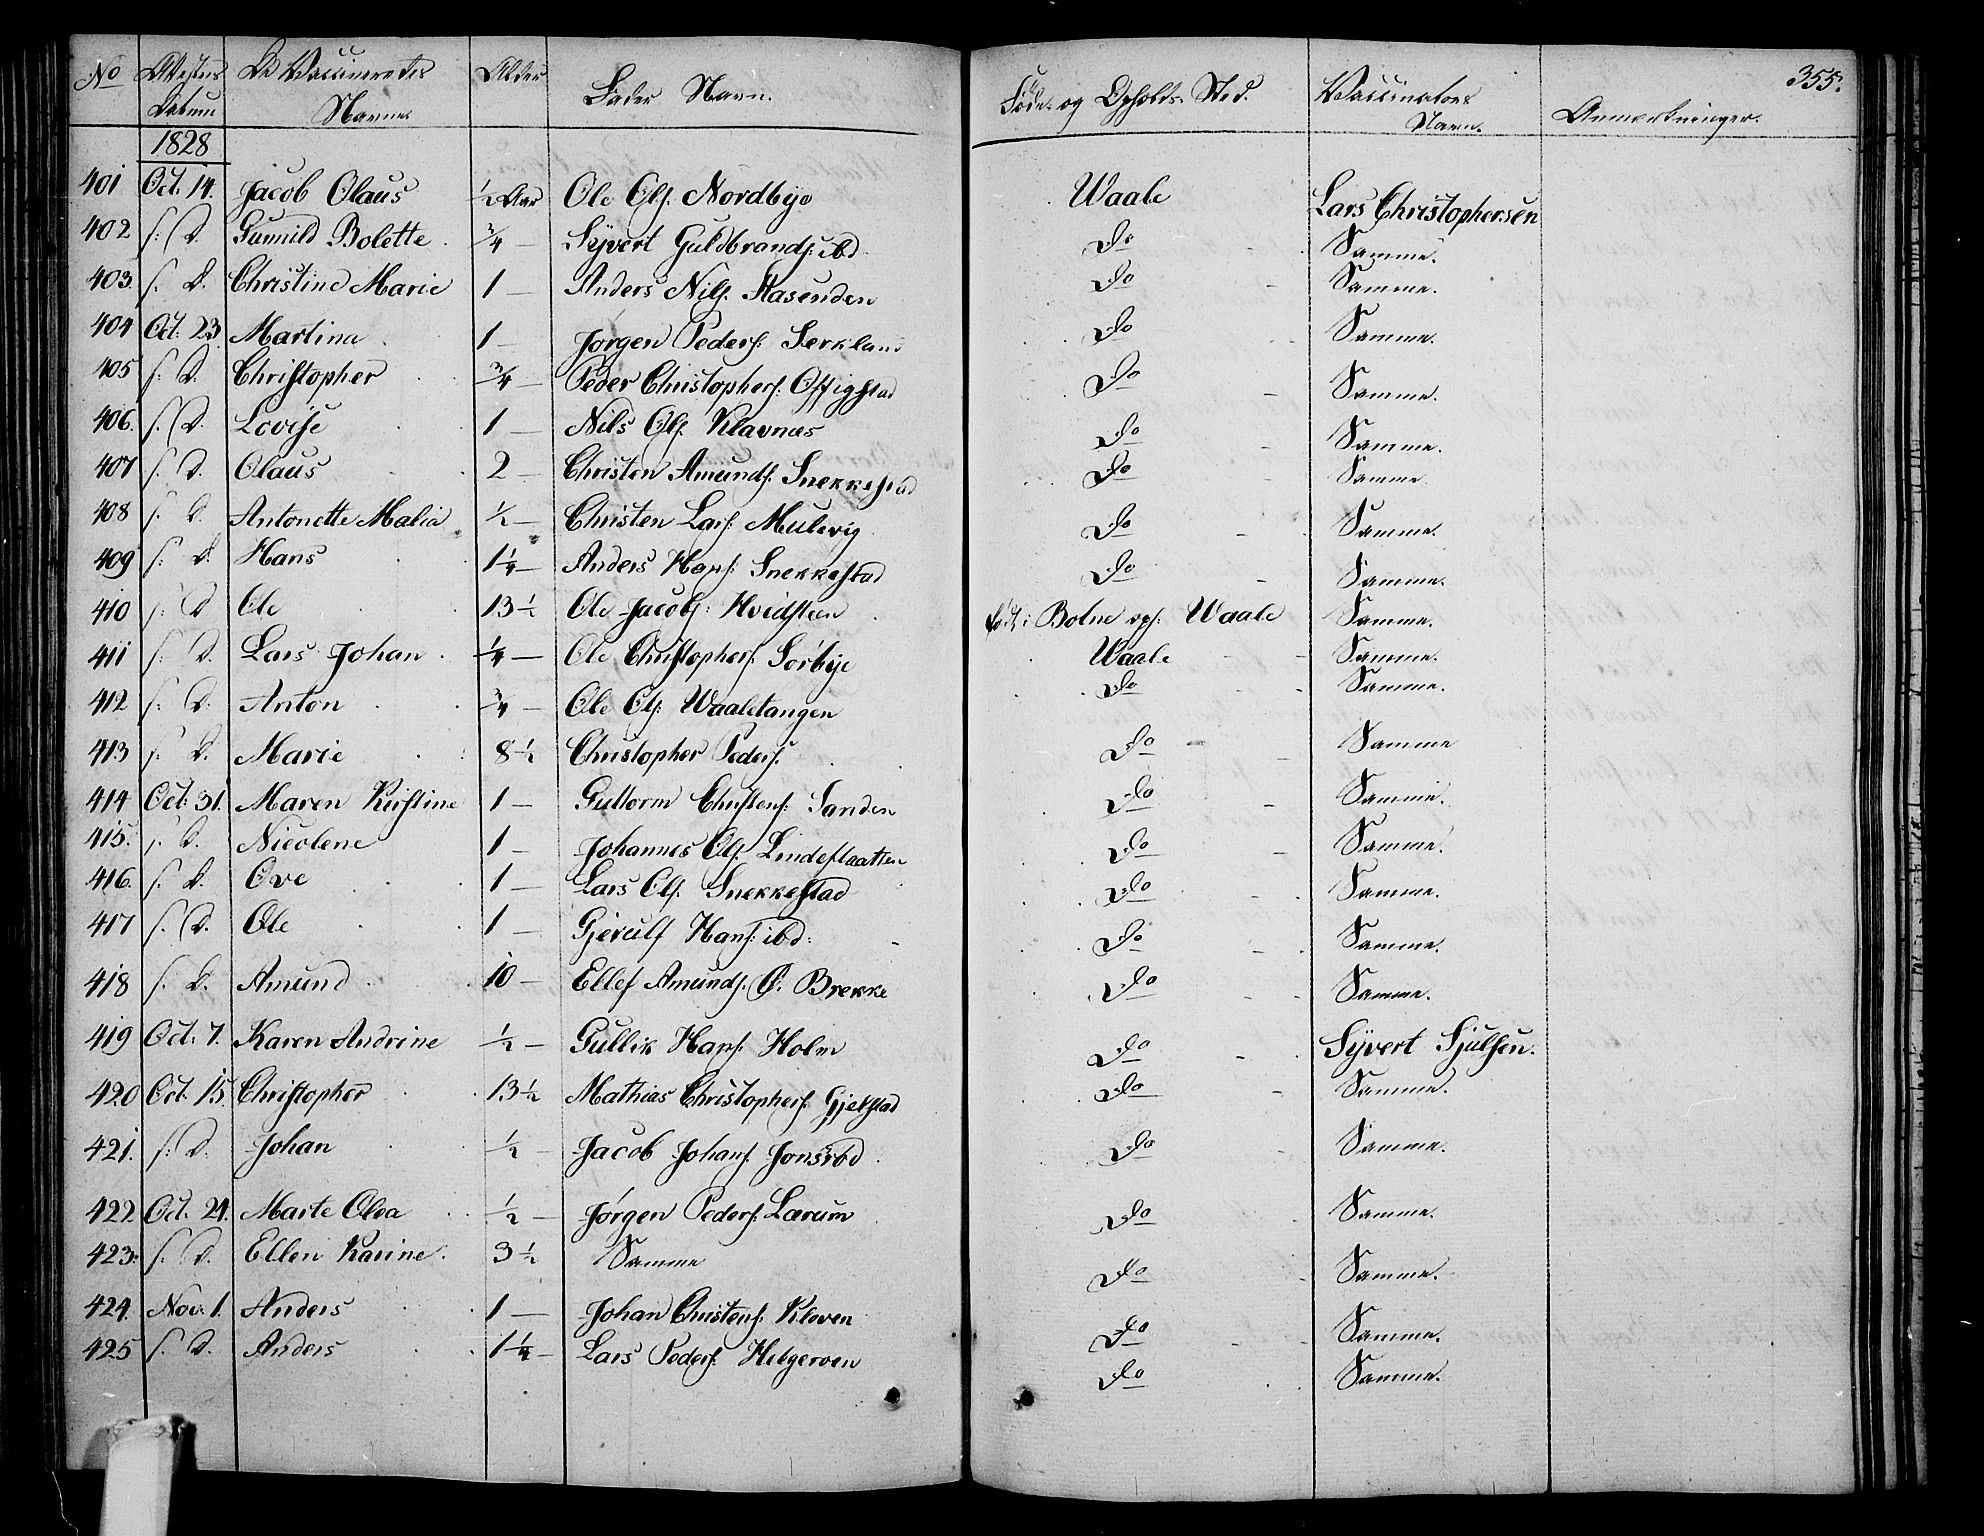 No Attestens Datum De Vaccineredes Navne Alder Fader Navn. Føde- og Opholds-Sted. Vaccinators Navn. Anmærkninger. 355.
1828
401 Oct. 14. Jacob Olaus ½ Aar Ole Ols. Nordbye Waale Lars Christophersen
402 s. D. Gunnild Bolette ¾ Syvert Guldbrands. ibd Do Samme.
403. s. D. Christine Marie 1 Anders Nils. Aasenden Do Samme.
404 Oct. 23 Martina 1 Jørgen Peders. Serkland Do Samme.
405 s. D. Christopher ¾ Peder Christophers. Offigstad Do Samme.
406. s. D. Lovise 1 Nils Ols. Klavnæs Do Samme.
407 s. D. Olaus 2 Christen Amunds. Snekkestad Do Samme
408 s. D. Antonette Malia ½ Christen Lars. Mulevig Do Samme.
409 s. D. Hans 1¼ Anders Hans. Snekkestad Do Samme.
410 s. D Ole 13½ Ole Jacobs. Hvidsteen fød i Botne ops. Waale Samme.
411 s. D. Lars Johan ¼ Ole Christophers. Sørbye Waale Samme.
412 s. D. Anton ¾ Ole Ols. Waaletangen Do Samme.
413 s. D. Marie 8½ Christopher Peders. Do Samme
414 Oct. 31. Maren Kirstine 1 Guttorm Christens. Sanden Do Samme.
415. s. D. Nicolene 1 Johannes Ols. Lindeslaatten Do Samme.
416. s. D. Ove 1 Lars Ols. Snekkestad Do Samme.
417 s. D. Ole 1 Gjerulf Hans. ibd. Do Samme.
418 s. D. Amund 10 Ellef Amunds. Ø. Brekke Do Samme.
419 Oct. 7. Karen Andrine ½ Gullik Hans. Holm Do Syvert Sjulsen.
420 Oct. 15. Christopher 13½ Mathias Christophers. Gjelstad Do Samme.
421. s. D. Johan ½ Jacob Johans. Jonsrød Do Samme.
422 Oct. 21. Marte Olea ½ Jørgen Peders. Lærum Do Samme.
423. s. D. Ellen Karine. 3½ Samme Do Samme.
424. Nov. 1. Anders 1 Johan Christens. Kloven Do Samme.
425 s. D. Anders 1¼ Lars Peders. Helgeroen Do Samme.